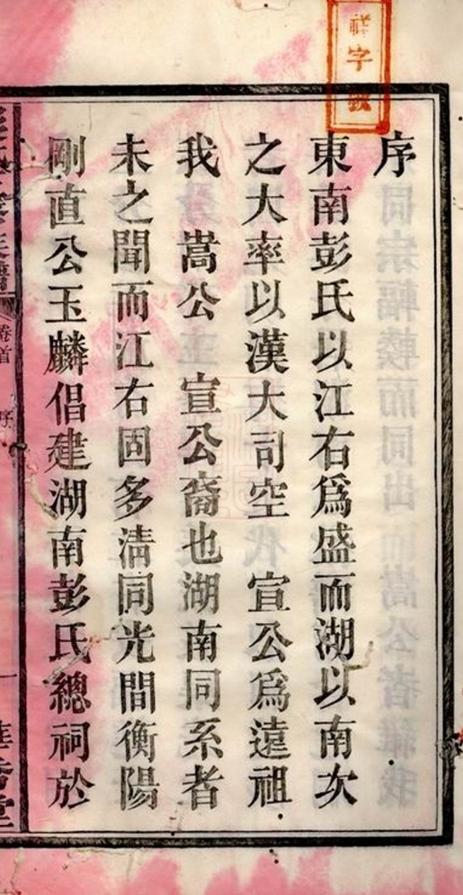 祥字號
序
東南彭氏以江右爲盛而湖以南次
之大率以漢大司空 宣公爲遠祖
我 嵩公 宣公裔也湖南同系者
未之聞而江右固多淸同光間衡陽
剛直公玉麟倡建湖南彭氏總祠於
卷首
序
一